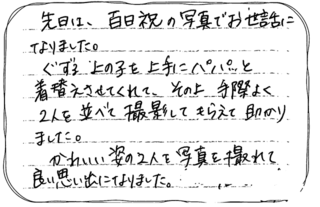 先日は、百日祝の写真でお世話に
なりました。
ぐずる上の子を上手にパパッと
着替えさせてくれて、その上手際よく
2人を並べて撮影してもらえて助かり
ました。
かわいい姿の2人を写真を撮れて
良い思い出になりました。